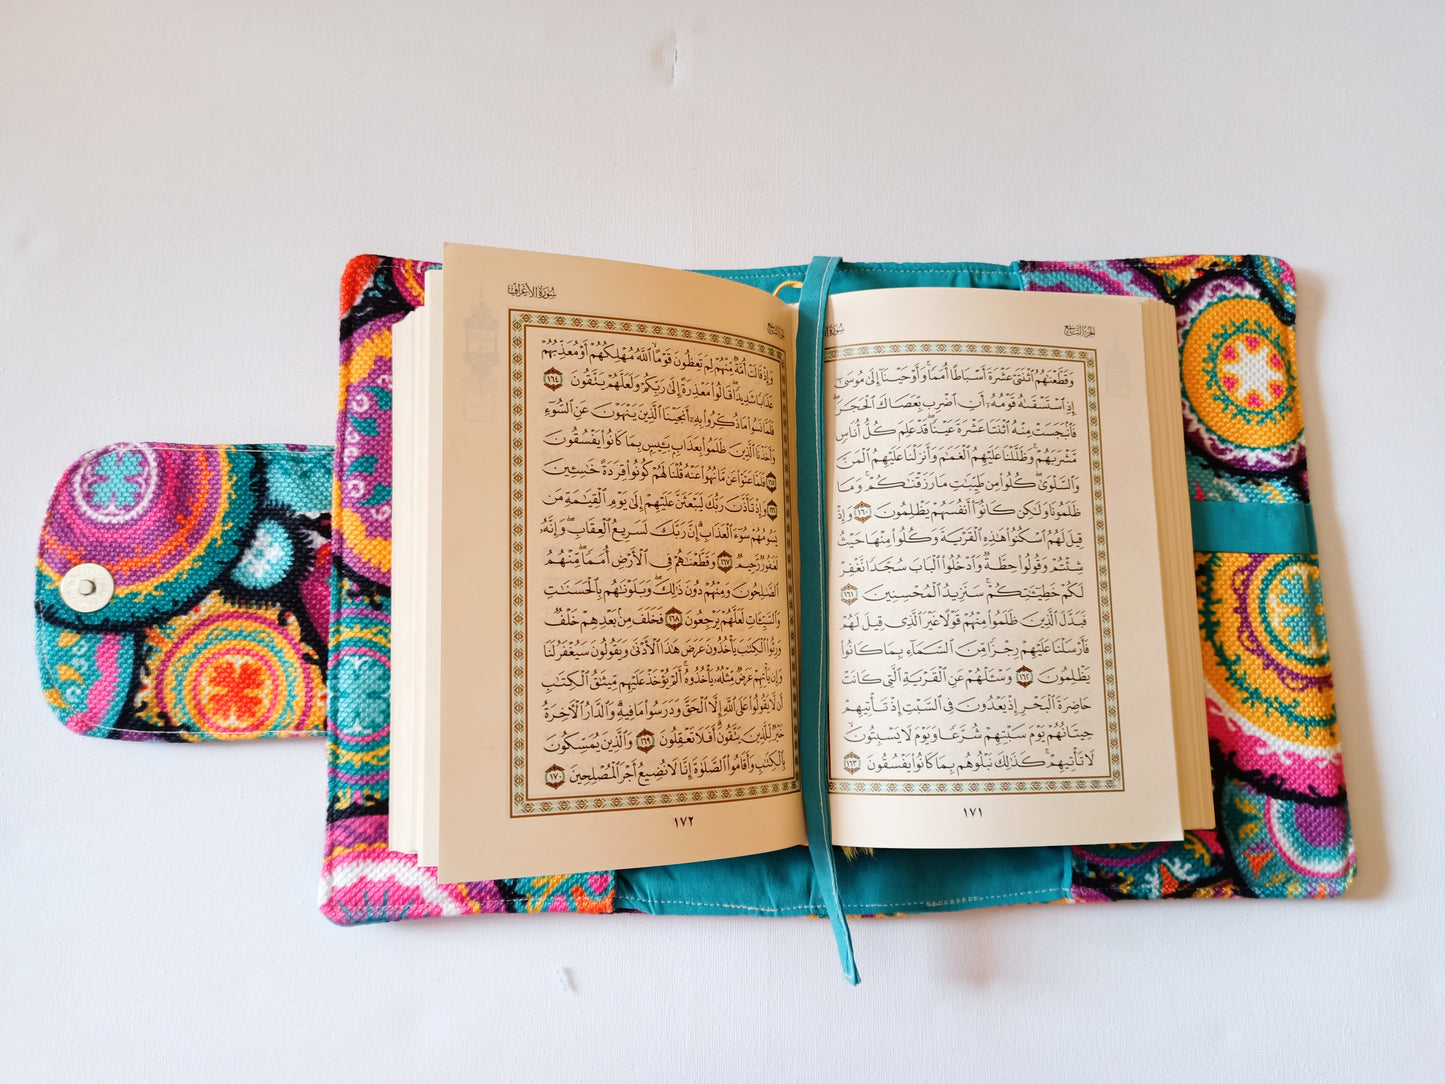 الجزء التاسع
سورة
وَقَطَّعْنَٰهُمُ ٱثْنَتَىْ عَشْرَةَ أَسْبَاطًا أُمَمًا ۚ وَأَوْحَيْنَآ إِلَىٰ مُوسَىٰٓ
إِذِ ٱسْتَسْقَىٰهُ قَوْمُهُۥٓ أَنِ ٱضْرِب بِّعَصَاكَ ٱلْحَجَرَ ۖ
فَٱنۢبَجَسَتْ مِنْهُ ٱثْنَتَا عَشْرَةَ عَيْنًا ۖ قَدْ عَلِمَ كُلُّ أُنَاسٍ
مَّشْرَبَهُمْ ۚ وَظَلَّلْنَا عَلَيْهِمُ ٱلْغَمَٰمَ وَأَنزَلْنَا عَلَيْهِمُ ٱلْمَنَّ
وَٱلسَّلْوَىٰ ۖ كُلُوا۟ مِن طَيِّبَٰتِ مَا رَزَقْنَٰكُمْ ۚ وَمَا
ظَلَمُونَا وَلَٰكِن كَانُوٓا۟ أَنفُسَهُمْ يَظْلِمُونَ ١٦٠ وَإِذْ
قِيلَ لَهُمُ ٱسْكُنُوا۟ هَٰذِهِ ٱلْقَرْيَةَ وَكُلُوا۟ مِنْهَا حَيْثُ
شِئْتُمْ وَقُولُوا۟ حِطَّةٌ وَٱدْخُلُوا۟ ٱلْبَابَ سُجَّدًا نَّغْفِرْ
لَكُمْ خَطِيٓـَٰٔتِكُمْ ۚ سَنَزِيدُ ٱلْمُحْسِنِينَ ١٦١
فَبَدَّلَ ٱلَّذِينَ ظَلَمُوا۟ مِنْهُمْ قَوْلًا غَيْرَ ٱلَّذِى قِيلَ لَهُمْ
فَأَرْسَلْنَا عَلَيْهِمْ رِجْزًا مِّنَ ٱلسَّمَآءِ بِمَا كَانُوا۟
يَظْلِمُونَ ١٦٢ وَسْـَٔلْهُمْ عَنِ ٱلْقَرْيَةِ ٱلَّتِى كَانَتْ
حَاضِرَةَ ٱلْبَحْرِ إِذْ يَعْدُونَ فِى ٱلسَّبْتِ إِذْ تَأْتِيهِمْ
حِيتَانُهُمْ يَوْمَ سَبْتِهِمْ شُرَّعًا وَيَوْمَ لَا يَسْبِتُونَ ۙ
لَا تَأْتِيهِمْ ۚ كَذَٰلِكَ نَبْلُوهُم بِمَا كَانُوا۟ يَفْسُقُونَ ١٦٣
١٧١
سورة الأعراف
وَإِذْ قَالَتْ أُمَّةٌ مِّنْهُمْ لِمَ تَعِظُونَ قَوْمًا ۙ ٱللَّهُ مُهْلِكُهُمْ أَوْ مُعَذِّبُهُمْ
عَذَابًا شَدِيدًا ۖ قَالُوا۟ مَعْذِرَةً إِلَىٰ رَبِّكُمْ وَلَعَلَّهُمْ يَتَّقُونَ ١٦٤
فَلَمَّا نَسُوا۟ مَا ذُكِّرُوا۟ بِهِۦٓ أَنجَيْنَا ٱلَّذِينَ يَنْهَوْنَ عَنِ ٱلسُّوٓءِ
وَأَخَذْنَا ٱلَّذِينَ ظَلَمُوا۟ بِعَذَابٍۭ بَـِٔيسٍۭ بِمَا كَانُوا۟ يَفْسُقُونَ
١٦٥ فَلَمَّا عَتَوْا۟ عَن مَّا نُهُوا۟ عَنْهُ قُلْنَا لَهُمْ كُونُوا۟ قِرَدَةً خَٰسِـِٔينَ
١٦٦ وَإِذْ تَأَذَّنَ رَبُّكَ لَيَبْعَثَنَّ عَلَيْهِمْ إِلَىٰ يَوْمِ ٱلْقِيَٰمَةِ مَن
يَسُومُهُمْ سُوٓءَ ٱلْعَذَابِ ۗ إِنَّ رَبَّكَ لَسَرِيعُ ٱلْعِقَابِ ۖ وَإِنَّهُۥ
لَغَفُورٌ رَّحِيمٌ ١٦٧ وَقَطَّعْنَٰهُمْ فِى ٱلْأَرْضِ أُمَمًا ۖ مِّنْهُمُ
ٱلصَّٰلِحُونَ وَمِنْهُمْ دُونَ ذَٰلِكَ ۖ وَبَلَوْنَٰهُم بِٱلْحَسَنَٰتِ
وَٱلسَّيِّـَٔاتِ لَعَلَّهُمْ يَرْجِعُونَ ١٦٨ فَخَلَفَ مِنۢ بَعْدِهِمْ خَلْفٌ
وَرِثُوا۟ ٱلْكِتَٰبَ يَأْخُذُونَ عَرَضَ هَٰذَا ٱلْأَدْنَىٰ وَيَقُولُونَ سَيُغْفَرُ لَنَا
وَإِن يَأْتِهِمْ عَرَضٌ مِّثْلُهُۥ يَأْخُذُوهُ ۚ أَلَمْ يُؤْخَذْ عَلَيْهِم مِّيثَٰقُ ٱلْكِتَٰبِ
أَن لَّا يَقُولُوا۟ عَلَى ٱللَّهِ إِلَّا ٱلْحَقَّ وَدَرَسُوا۟ مَا فِيهِ ۗ وَٱلدَّارُ ٱلْـَٔاخِرَةُ
خَيْرٌ لِّلَّذِينَ يَتَّقُونَ ۗ أَفَلَا تَعْقِلُونَ ١٦٩ وَٱلَّذِينَ يُمَسِّكُونَ
بِٱلْكِتَٰبِ وَأَقَامُوا۟ ٱلصَّلَوٰةَ إِنَّا لَا نُضِيعُ أَجْرَ ٱلْمُصْلِحِينَ ١٧٠
١٧٢